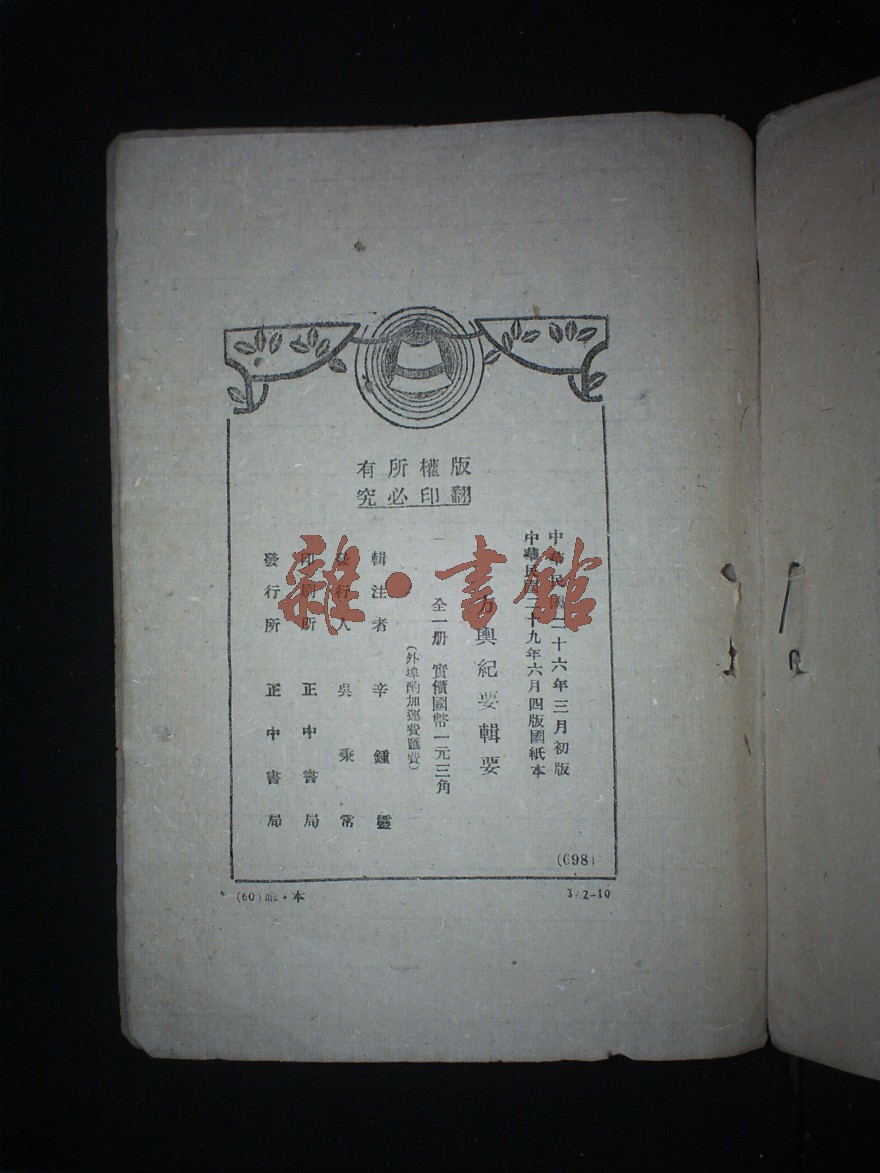 版權所有
翻印必究
中華民國二十六年三月初版
中華民國二十九年六月四版國紙本
方輿紀要輯要
全一册 實價國幣一元三角
(外埠酌加運費匯費)
輯注者 辛鍾靈
發行人 吳秉常
印刷所 正中書局
發行所 正中書局
(698)
3/2-10
(60) 本
雜·書館